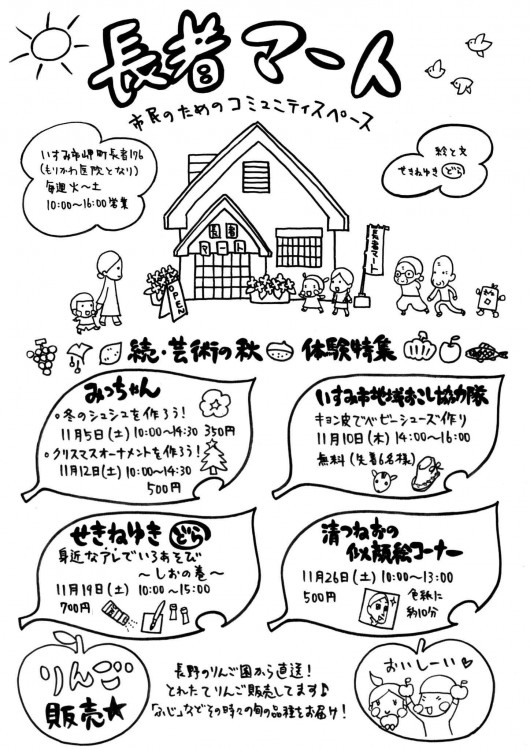 長者マート
市民のためのコミュニティスペース
いすみ市岬町長者176
(もりかわ医院となり)
毎週火〜土
10:00〜16:00営業
絵と文
せきねゆき どら
長者
マート
長者マート
OPEN
続・芸術の秋 体験特集
みっちゃん
◦冬のシュシュを作ろう!
11月5日(土) 10:00〜14:30 350円
◦クリスマスオーナメントを作ろう!
11月12日(土) 10:00〜14:30
500円
いすみ市地域おこし協力隊
キョン皮でベビーシューズ作り
11月10日(木) 14:00〜16:00
無料(先着6名様)
せきねゆき どら
身近なアレでいろあそび
〜しおの巻〜
11月19日(土) 10:00〜15:00
700円
清つねおの
似顔絵コーナー
11月26日(土) 10:00〜13:00
500円 色紙に
約10分
りんご
販売★
長野のりんご園から直送!
とれたてりんご販売してます♪
「ふじ」などその時々の旬の品種をお届け!
おいしーい♡